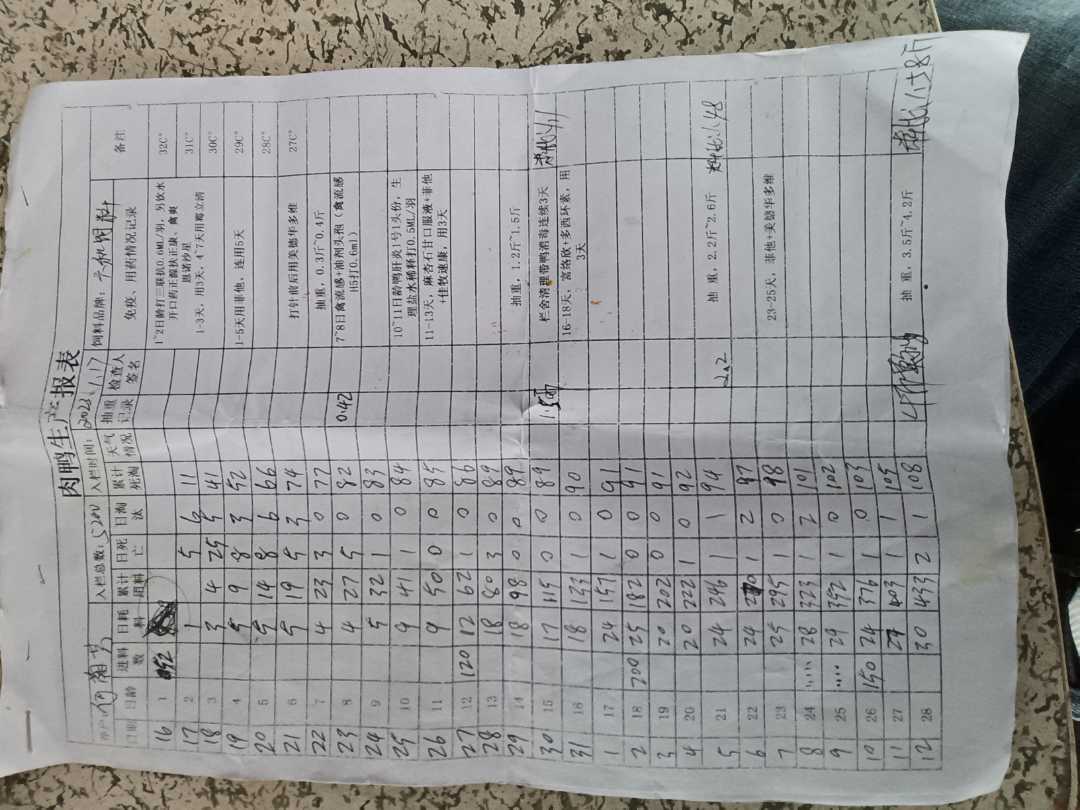 肉鸭生产报表
养户: 何 入栏总数: 5200 入栏时间: 2023 1.17 饲料品牌: 六和饲料
日期 日龄 进料数 日耗料 累计耗料 日死亡 日淘汰 累计死淘 天气情况 抽重记录 检查人签名 免疫、用药情况记录 备注
16 1 1~2日龄打二联抗0.6ML/羽,另饮水开口药正源扶正康、禽爽 32C°
17 2 1 5 6 11 恩诺沙星 31C°
18 3 3 4 25 5 41 1-3天,用3天,4~7天用霉立清 30C°
19 4 5 9 8 3 52 1-5天用菲他,连用5天 29C°
20 5 5 14 8 6 66 28C°
21 6 5 19 5 3 74 打针前后用美德华多维 27C°
22 7 4 23 3 0 77 抽重,0.3斤~0.4斤
23 8 4 27 5 0 82 0.42 7~8日禽流感+油剂头孢(禽流感H5打0.6ml)
24 9 5 32 1 0 83
25 10 9 41 1 0 84 10~11日龄鸭肝炎1号1头份,生理盐水稀释打0.5ML/羽
26 11 9 50 0 0 85 11-13天,麻杏石甘口服液+菲他+佳牧速康,用3天
27 12 120 12 62 1 0 86
28 13 18 80 3 0 89
29 14 18 98 0 0 89 抽重,1.2斤~1.5斤
30 15 17 115 0 0 89 栏舍清理带鸭消毒连续3天
31 16 18 133 1 0 90 16-18天,富络欣+多西环素,用3天
1 17 24 157 1 0 91
2 18 200 25 182 0 0 91
3 19 20 202 0 0 91
4 20 20 222 1 0 92
5 21 24 246 1 1 94 2.2 抽重,2.2斤~2.6斤 料比1.48
6 22 24 270 1 2 97
7 23 25 295 1 0 98 23-25天,菲他+美德华多维
8 24 28 323 1 2 101
9 25 29 352 1 0 102
10 26 150 24 376 1 0 103
11 27 27 403 1 1 105
12 28 30 433 2 1 108 抽重,3.5斤~4.2斤